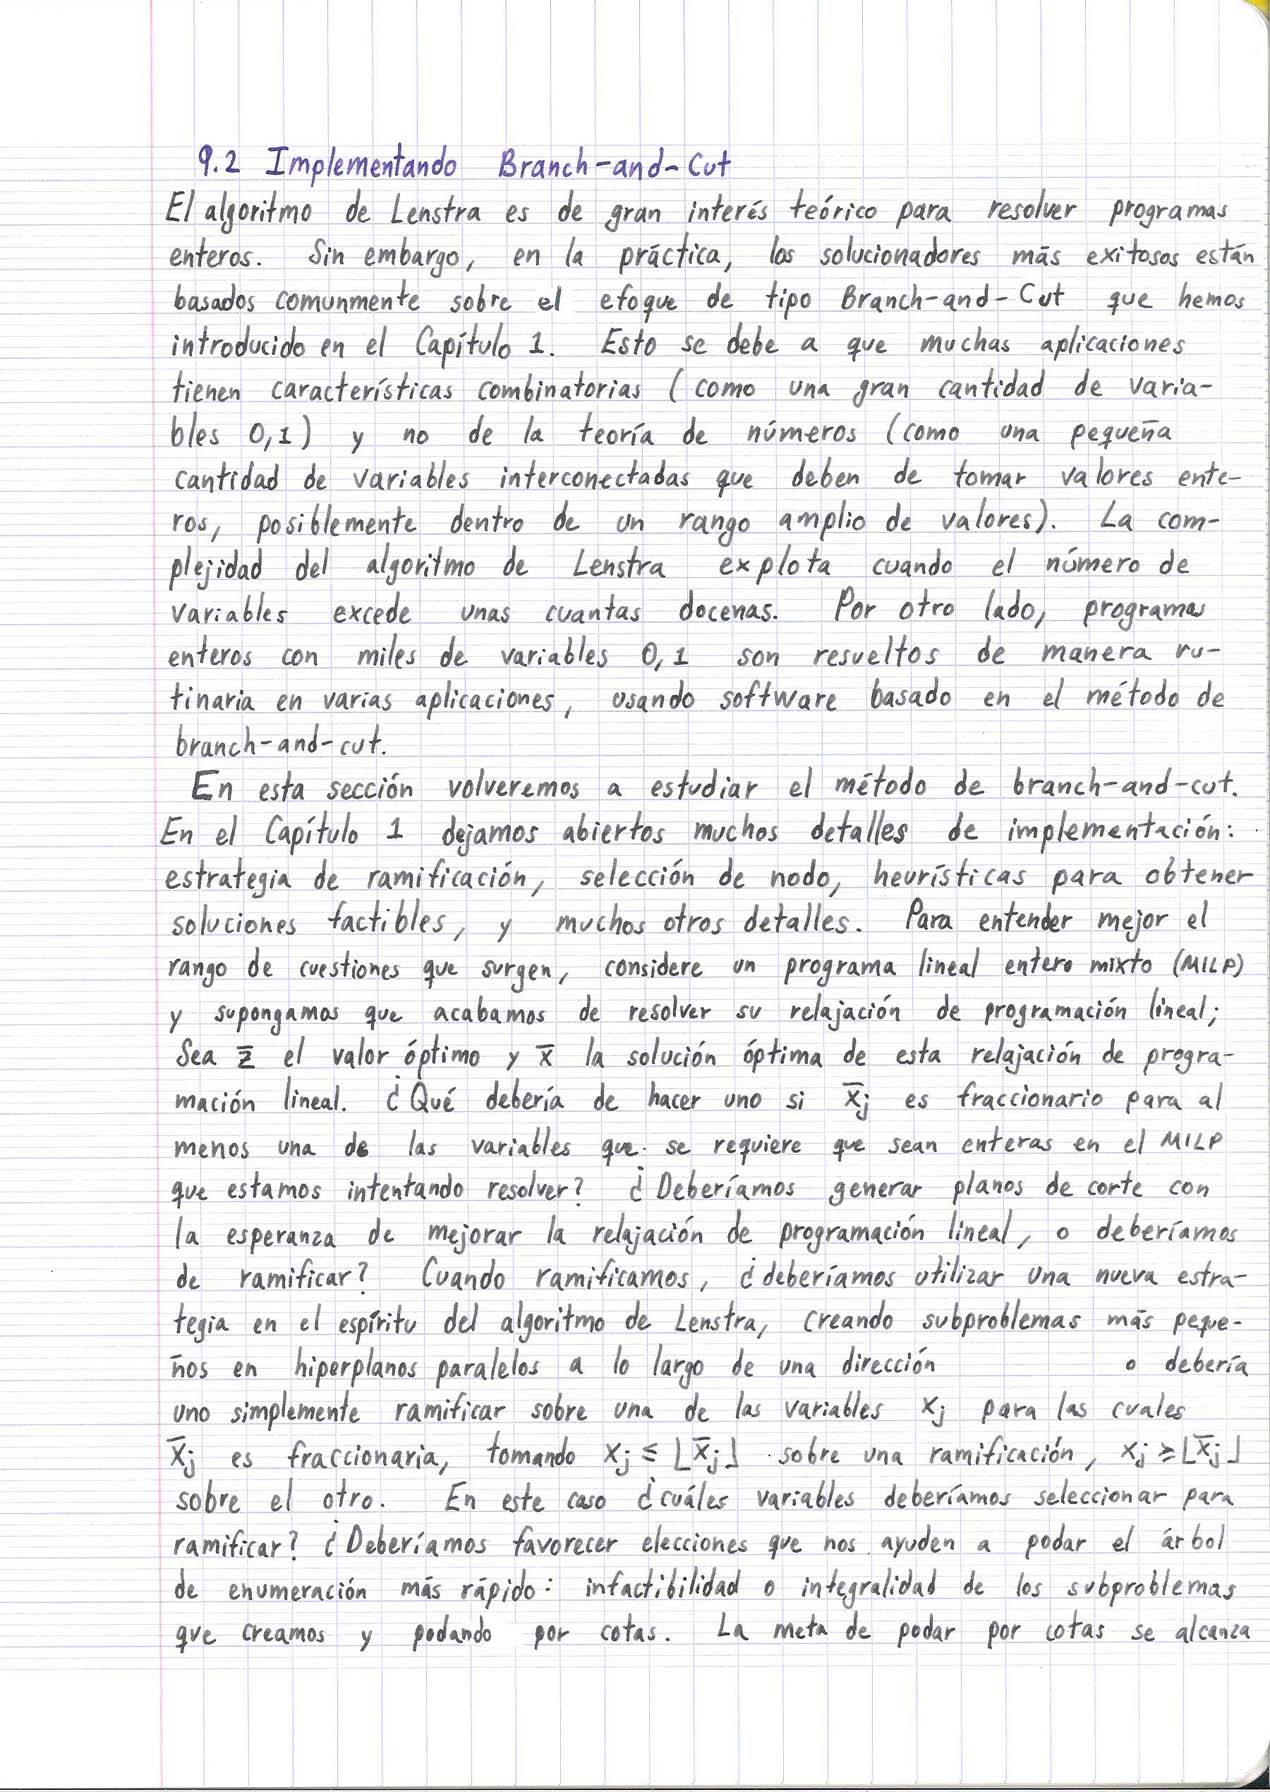 9.2 Implementando Branch-and-Cut
El algoritmo de Lenstra es de gran interés teórico para resolver programas
enteros. Sin embargo, en la práctica, los solucionadores más exitosos están
basados comunmente sobre el efoque de tipo Branch-and-Cut que hemos
introducido en el Capítulo 1. Esto se debe a que muchas aplicaciones
tienen características combinatorias (como una gran cantidad de varia-
bles 0,1) y no de la teoría de números (como una pequeña
cantidad de variables interconectadas que deben de tomar valores ente-
ros, posiblemente dentro de un rango amplio de valores). La com-
plejidad del algoritmo de Lenstra explota cuando el número de
variables excede unas cuantas docenas. Por otro lado, programas
enteros con miles de variables 0,1 son resueltos de manera ru-
tinaria en varias aplicaciones, usando software basado en el método de
branch-and-cut.
En esta sección volveremos a estudiar el método de branch-and-cut.
En el Capítulo 1 dejamos abiertos muchos detalles de implementación:
estrategia de ramificación, selección de nodo, heurísticas para obtener
soluciones factibles, y muchos otros detalles. Para entender mejor el
rango de cuestiones que surgen, considere un programa lineal entero mixto (MILP)
y supongamos que acabamos de resolver su relajación de programación lineal;
Sea z̅ el valor óptimo y x̅ la solución óptima de esta relajación de progra-
mación lineal. ¿Qué debería de hacer uno si x̅j es fraccionario para al
menos una de las variables que se requiere que sean enteras en el MILP
que estamos intentando resolver? ¿Deberíamos generar planos de corte con
la esperanza de mejorar la relajación de programación lineal, o deberíamos
de ramificar? Cuando ramificamos, ¿deberíamos utilizar una nueva estra-
tegia en el espíritu del algoritmo de Lenstra, creando subproblemas más peque-
ños en hiperplanos paralelos a lo largo de una dirección o debería
uno simplemente ramificar sobre una de las variables xj para las cuales
x̅j es fraccionaria, tomando xj ≤ ⌊x̅j⌋ sobre una ramificación, xj ≥ ⌊x̅j⌋
sobre el otro. En este caso ¿cuáles variables deberíamos seleccionar para
ramificar? ¿Deberíamos favorecer elecciones que nos ayuden a podar el árbol
de enumeración más rápido: infactibilidad o integralidad de los subproblemas
que creamos y podando por cotas. La meta de podar por cotas se alcanza